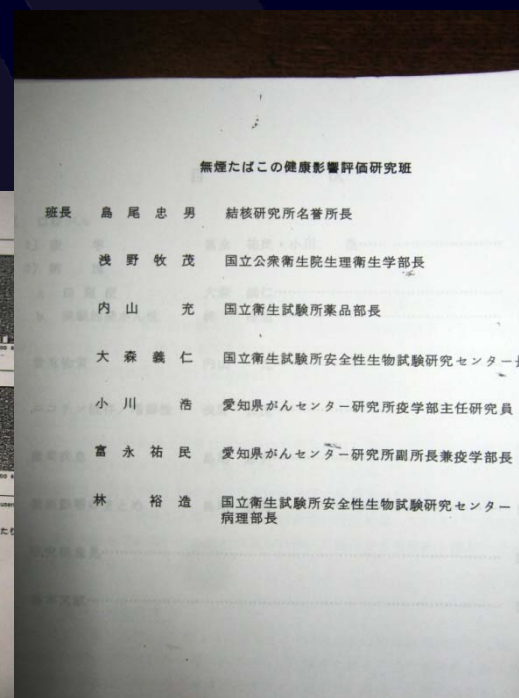 無煙たばこの健康影響評価研究班
班長 島尾忠男 結核研究所名誉所長
浅野牧茂 国立公衆衛生院生理衛生学部長
内山 充 国立衛生試験所薬品部長
大森義仁 国立衛生試験所安全性生物試験研究センター長
小川 浩 愛知県がんセンター研究所疫学部主任研究員
富永祐民 愛知県がんセンター研究所副所長兼疫学部長
林 裕造 国立衛生試験所安全性生物試験研究センター
病理部長